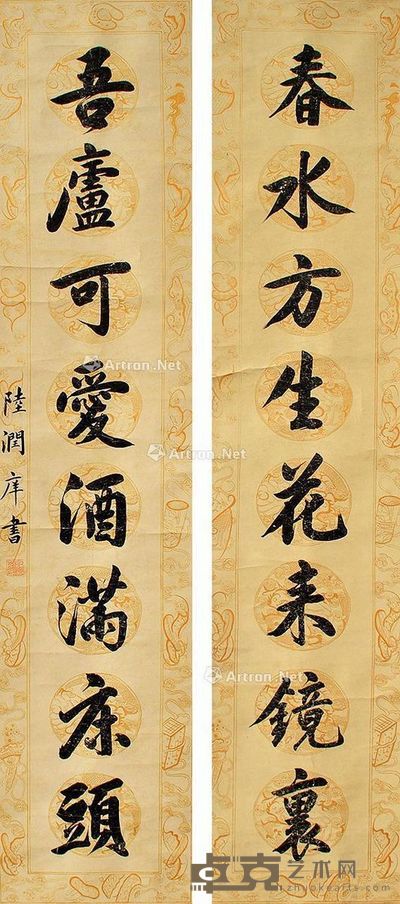 春水方生花来鏡裏
吾廬可愛酒滿床頭
陸潤庠書
Artron.Net
Artron.Net
Artron.Net
Artron.Net
卓克艺术网